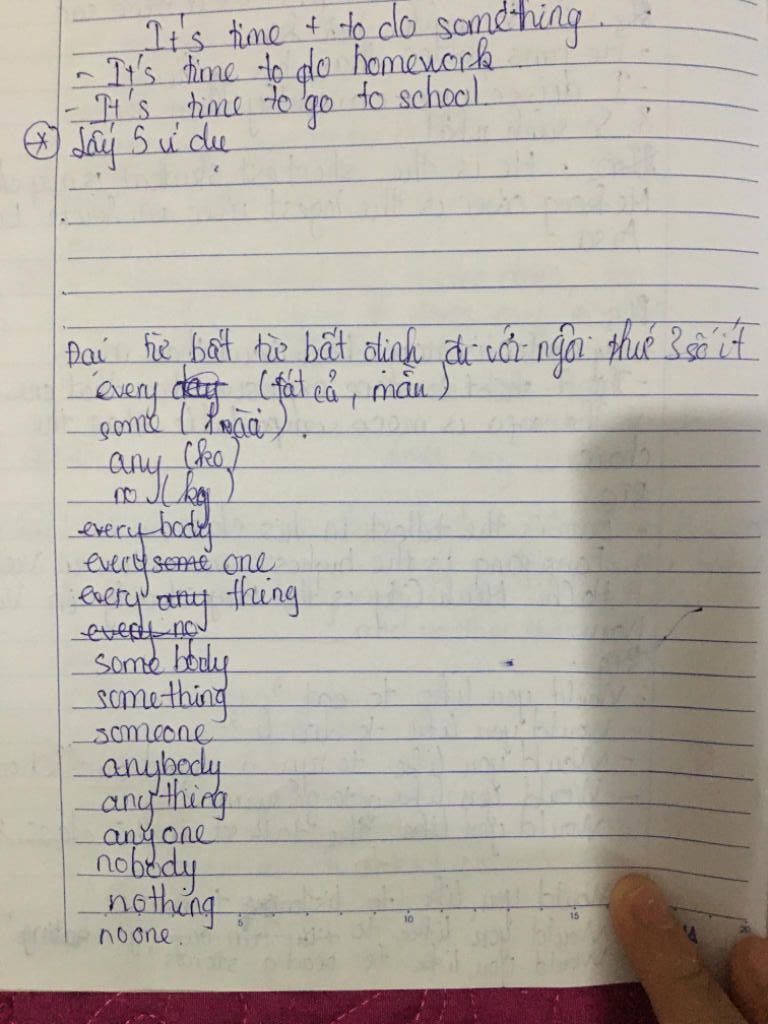 It's time + to do something.
- It's time to do homework
- It's time to go to school.
* Lấy 5 ví dụ
Đại từ bất từ bất định đi với ngôi thứ 3 số ít
every (tất cả, mẫu)
some (
any (ko)
no (
every body
every one
every thing
some body
something
someone
anybody
anything
anyone
nobody
nothing
5 10 15 20
noone.